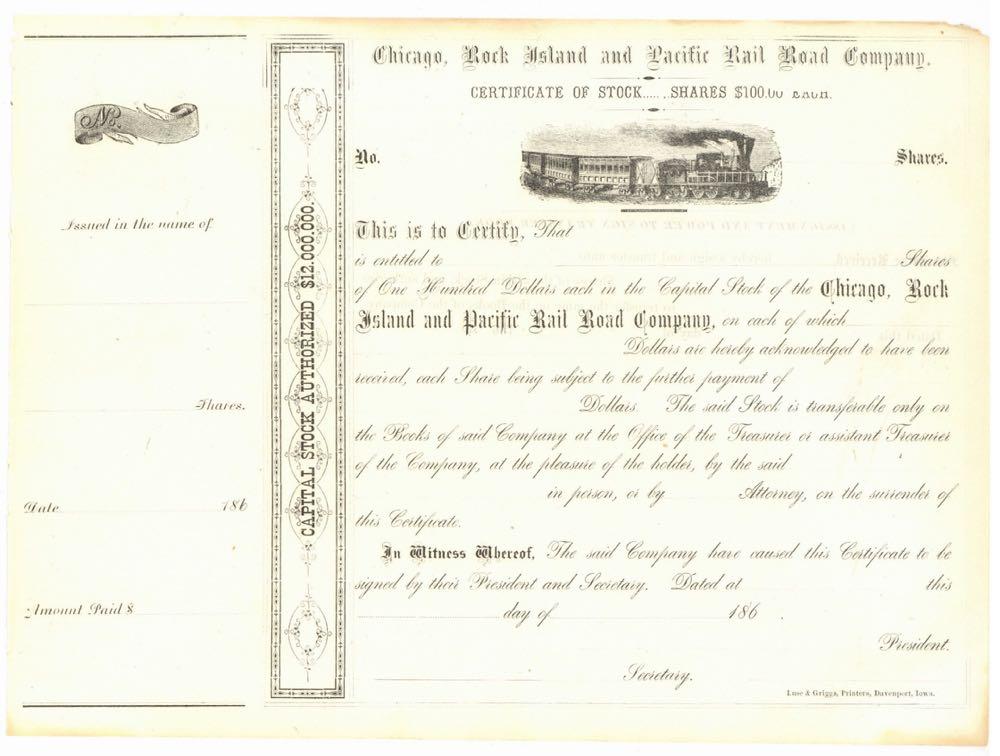 No.
Issued in the name of
Shares.
Date 186
Amount Paid $
CAPITAL STOCK AUTHORIZED $12.000.000.
Chicago, Rock Island and Pacific Rail Road Company.
CERTIFICATE OF STOCK...... SHARES $100.00 EACH.
No. Shares.
This is to Certify, That
is entitled to Shares
of One Hundred Dollars each in the Capital Stock of the Chicago, Rock
Island and Pacific Rail Road Company, on each of which
Dollars are hereby acknowledged to have been
received, each Share being subject to the further payment of
Dollars. The said Stock is transferable only on
the Books of said Company at the Office of the Treasurer or assistant Treasurer
of the Company, at the pleasure of the holder, by the said
in person, or by Attorney, on the surrender of
this Certificate.
In Witness Whereof, The said Company have caused this Certificate to be
signed by their President and Secretary. Dated at this
day of 186
President.
Secretary.
Luse & Griggs, Printers, Davenport, Iowa.